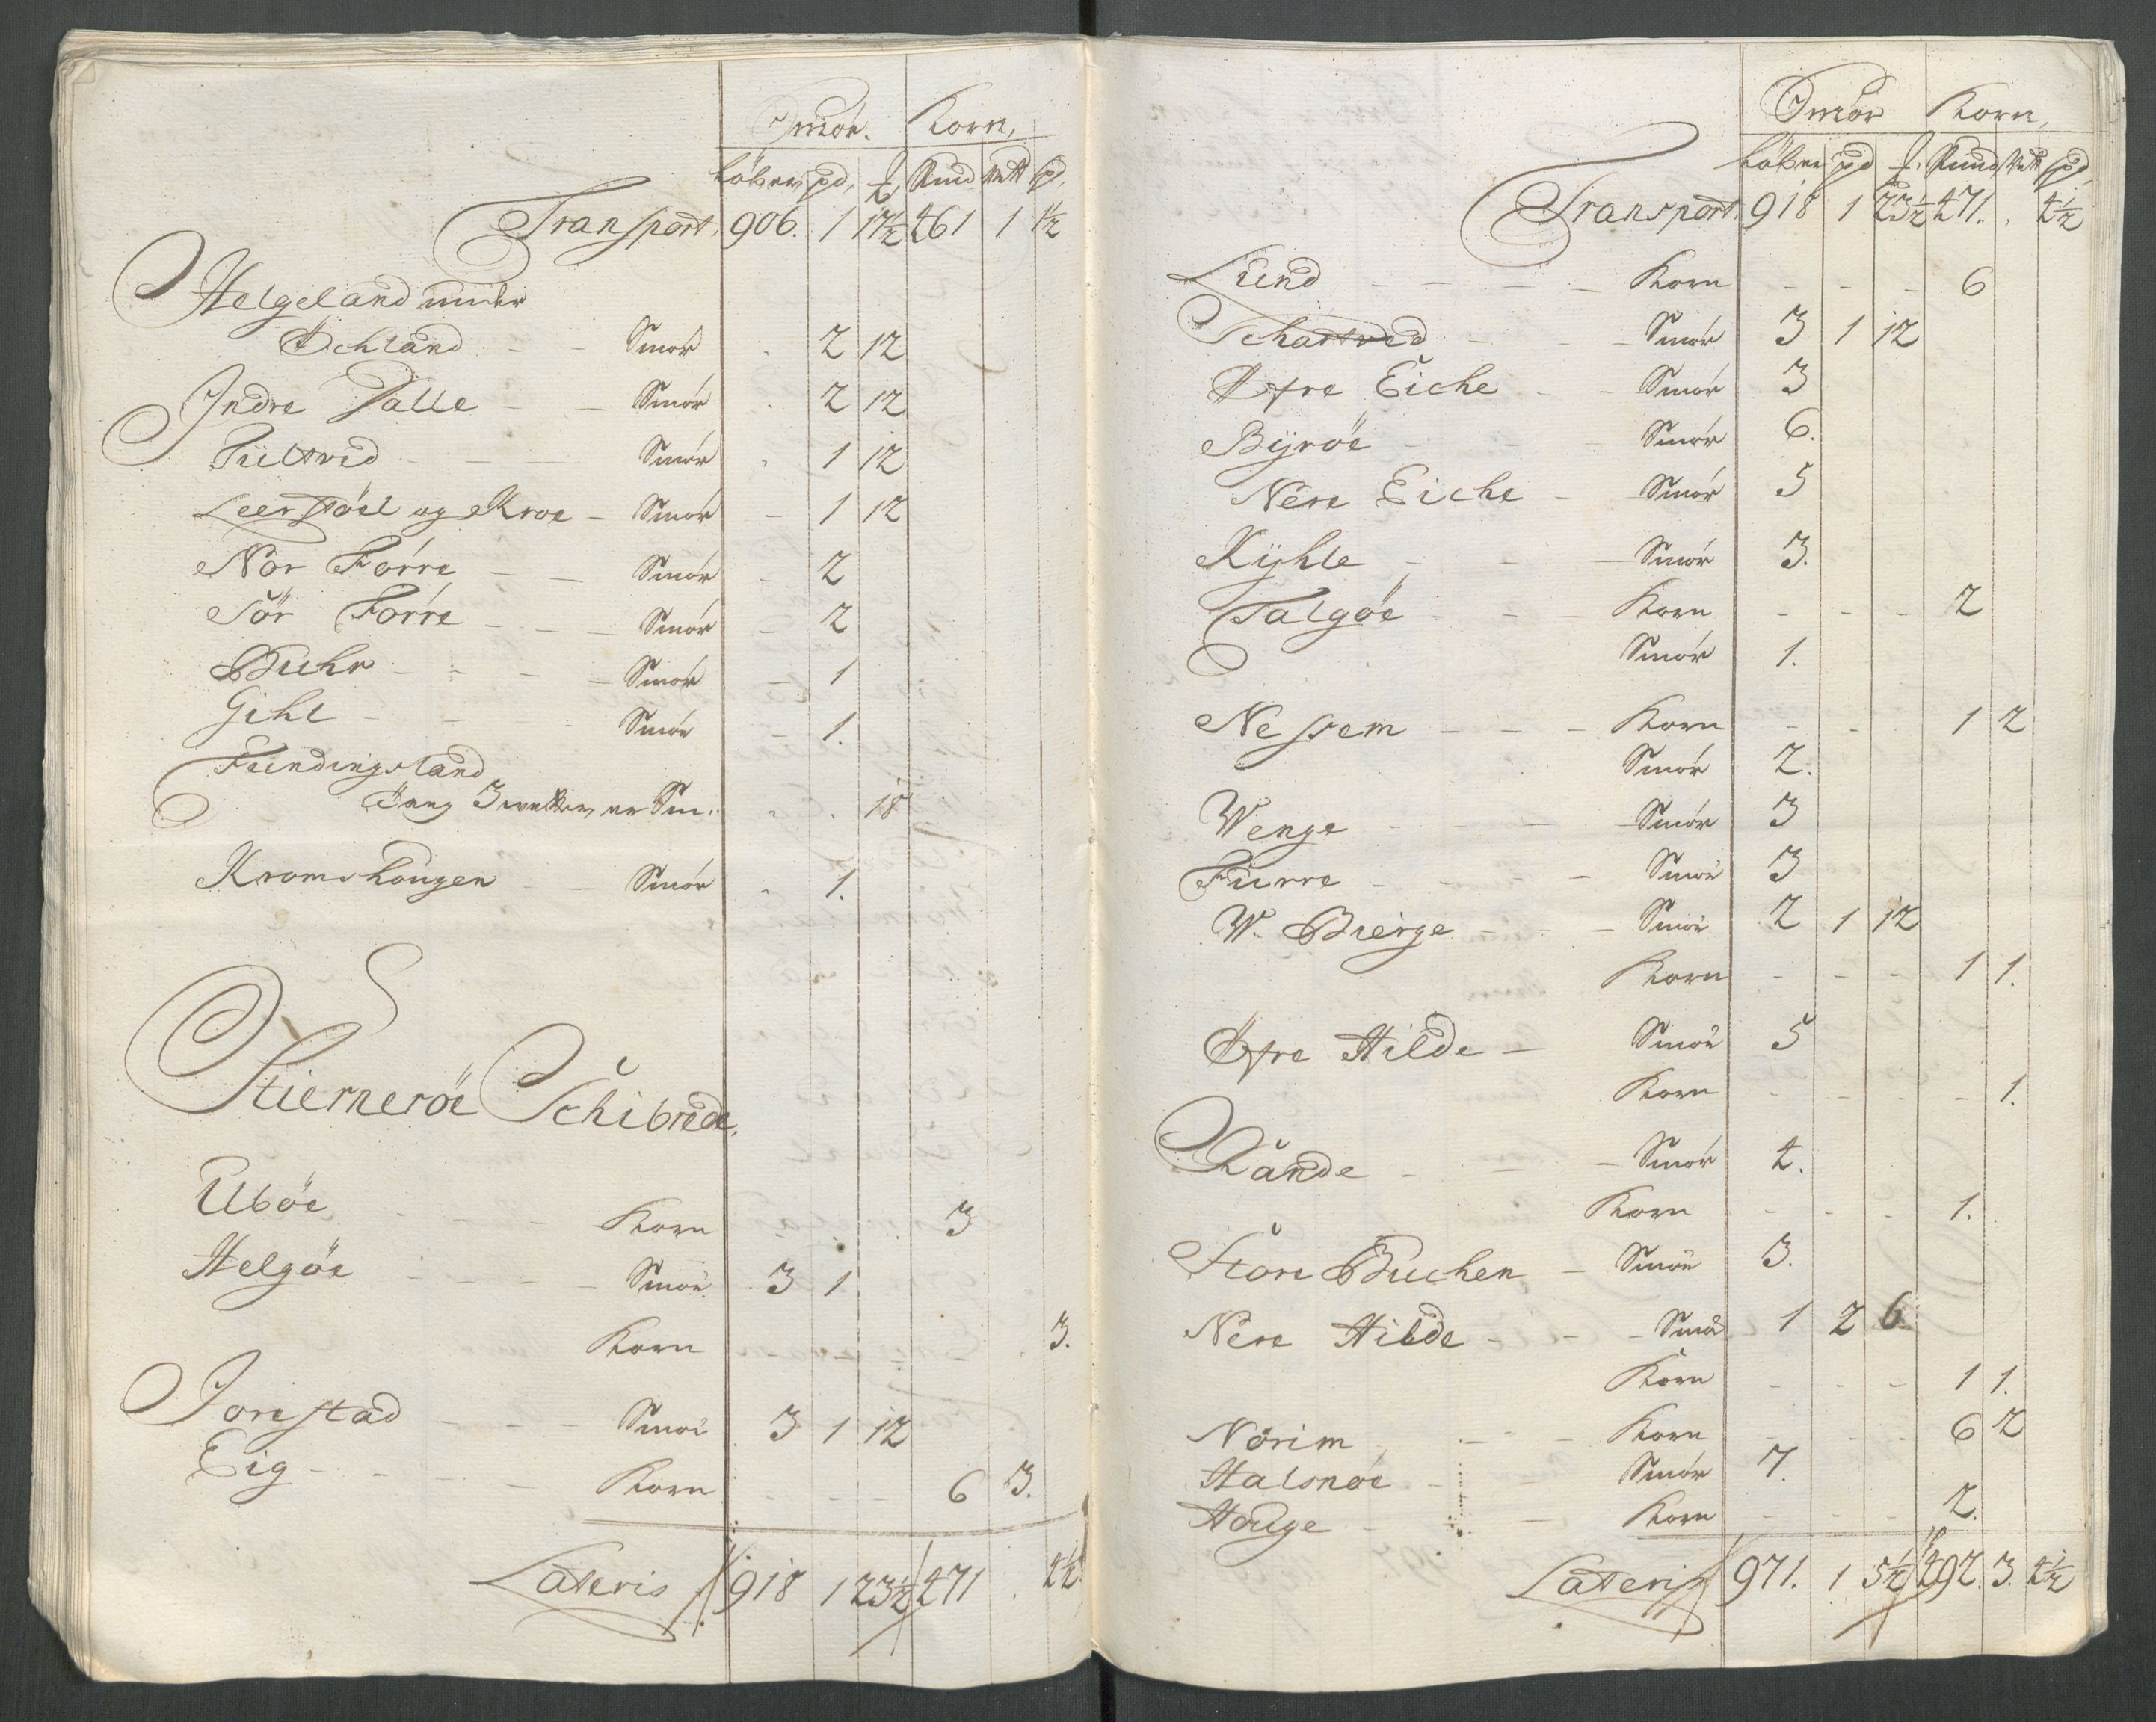 Smör. Korn,
Löber pd, ℔ Pund Vett Spd,
Transport, 906. 1 17½ 461 1 1½
Helgeland under
Öchland - - Smör . 2 12
Indre Talle - - Smör . 2 12
Tültved - - - Smör . 1 12
Leerstöel og Kroe - Smör - 1 12
Nör Förre - - Smör - 2
Sör Förre - - - Smör - 2
Buhr - - - - Smör - 1
Gihl - - - Smör - 1.
Fundingsland
3 Sm: . . 18
Kromshougen - - Smör . 1.
Stierneröe Schibrede.
Uböe - - - Korn 3
Helgöe - - - - Smör 3 1
Korn - - - - - 3.
Jorestad - - - Smör 3 1 12
Eig - - - - Korn - - - 6 3.
Lateris 918 1 23½ 471 . 4½
Smör Korn,
Löber pd ℔. Pund Vett Spd,
Transport, 918 1 23½ 471. . 4½
Lund - - - - Korn - - - 6
Schartved - - - Smör 3 1 12
Öfre Eiche - - Smör 3
Bÿröe - - - Smör 6.
Nere Eiche - Smör 5
Kÿhle - - - Smör 3.
Talgöe - - - Korn - - - 2
Smör 1.
Nessem - - - Korn - - 1 2
Smör 2.
Wenge - - - Smör 3
Furre - - - Smör 3
W. Bierge - - - Smör 2 1 12
Korn - - - 1 1.
Öfre Hilde - Smör 5
Korn - - - - 1.
Rande - - - Smör 4.
Korn - - - 1.
Store Buchen - Smör 3.
Nere Hilde - - - Smör 1 2 6
Korn - - - 1 1.
Nörim - - - Korn - - - 6 2
Halsnöe - - Smör 7.
Houge - - - Korn - - - 2.
Lateris 971. 1 5½ 492. 3. 4½